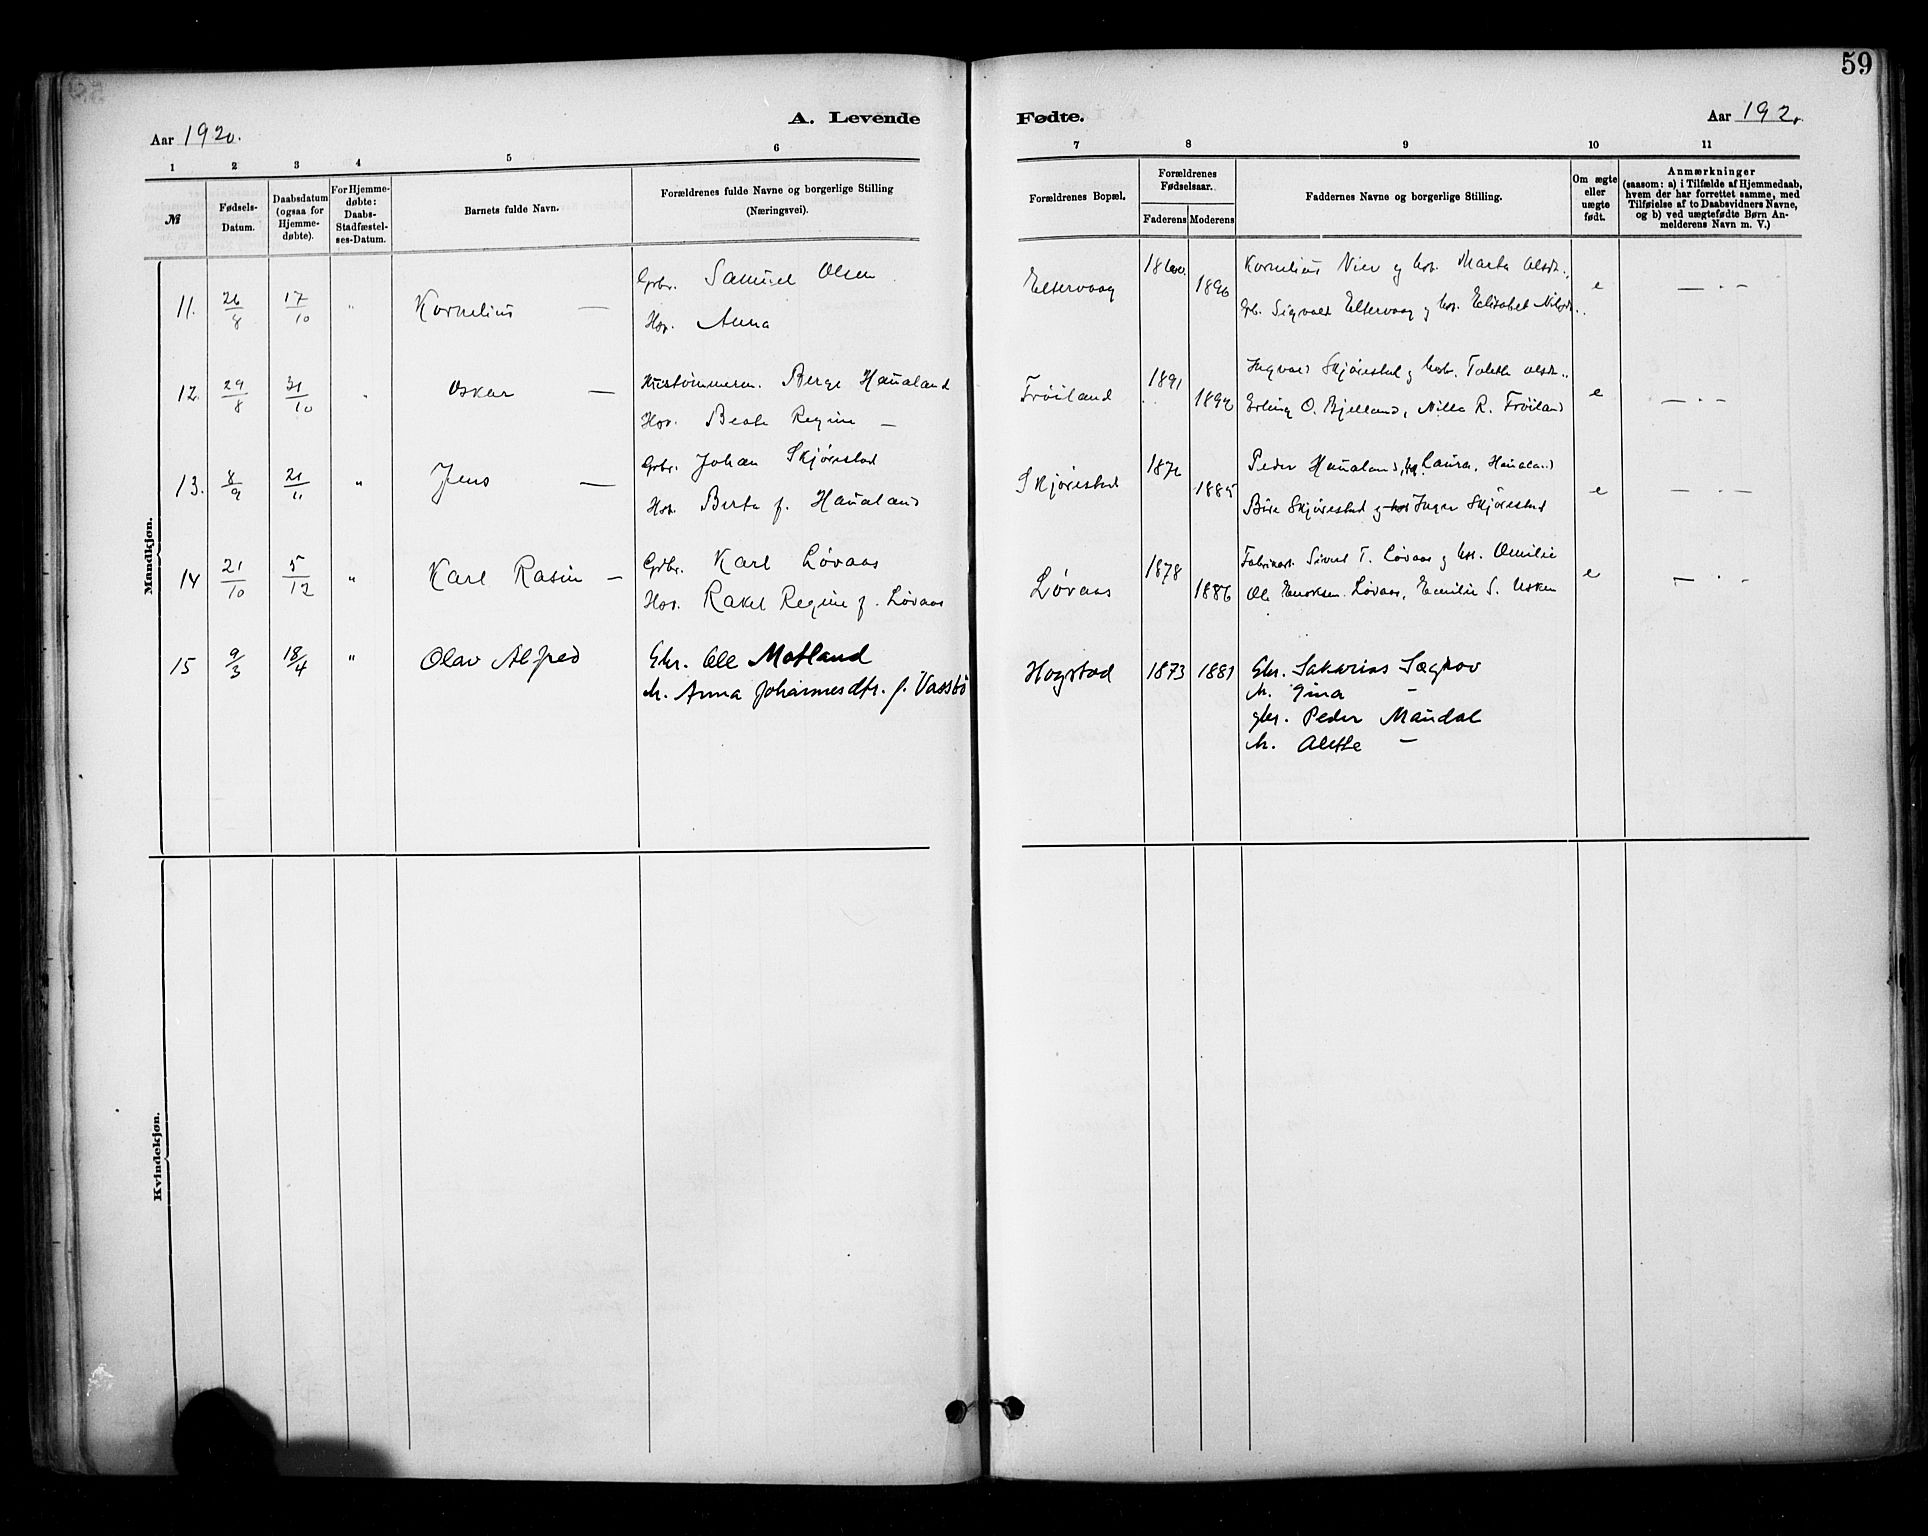 59
A. Levende Fødte.
Aar 1920.
Aar 192
1 2 3 4 5 6 7 8 9 10 11
№
Fødsels-Datum.
Daabsdatum (ogsaa for Hjemme-døbte).
For Hjemme-døbte: Daabs-Stadfæstel-ses-Datum.
Barnets fulde Navn.
Forældrenes fulde Navne og borgerlige Stilling
(Næringsvei).
Forældrenes Bopæl.
Forældrenes Fødselsaar.
Faderens Moderens
Faddernes Navne og borgerlige Stilling.
Om ægte eller uægte født.
Anmærkninger
(saasom: a) i Tilfælde af Hjemmedaab,
hvem der har forrettet samme, med
Tilføielse af to Daabsvidners Navne,
og b) ved uægtefødte Børn An-
melderens Navn m. V.)
Mandkjøn.
11. 26/8 17/10 " Kornelius — Gbr. Samuel Olsen
Hst. Anna
Eltervaag 1896
Kornelius Vier og hst. Marta Olsdt.,
Gb. Sigvald Eltervaag og hst. Elisabet
e — . —
12. 29/8 31/10 " Oskar — Berge Haualand
Hst. Beate Regine —
Frøiland 1891
Ingvald Skjørestad og hst.
Erling O. Bjelland, Nilla R. Frøiland
e — . —
13. 8/9 21/11 " Jens — Gbr. Johan Skjørestad
Hst. Berta f. Haualand
Skjørestad 1885
Peder Haualand, Laura Haualand
Skjørestad og Inger Skjørestad
e — . —
14 21/10 5/12 " Karl Rasin — Gbr. Karl Løvaas
Hst. Rakel Regine f. Løvaas
Løvaas 1878 1886
Sivert T. Løvaas og hst. Omilie
Ole Enoksen Løvaas, Emilie S. Usken
e — . —
15 9/3 18/4 " Olav Alfred Gbr. Ole Motland
h. Anna Johannesdtr. f. Vassbø
Hogstad 1873 1881
Gbr. Sakarias Sægrov
h. Gina —
gbr. Peder Maudal
h. Alette —
Kvindekjøn.